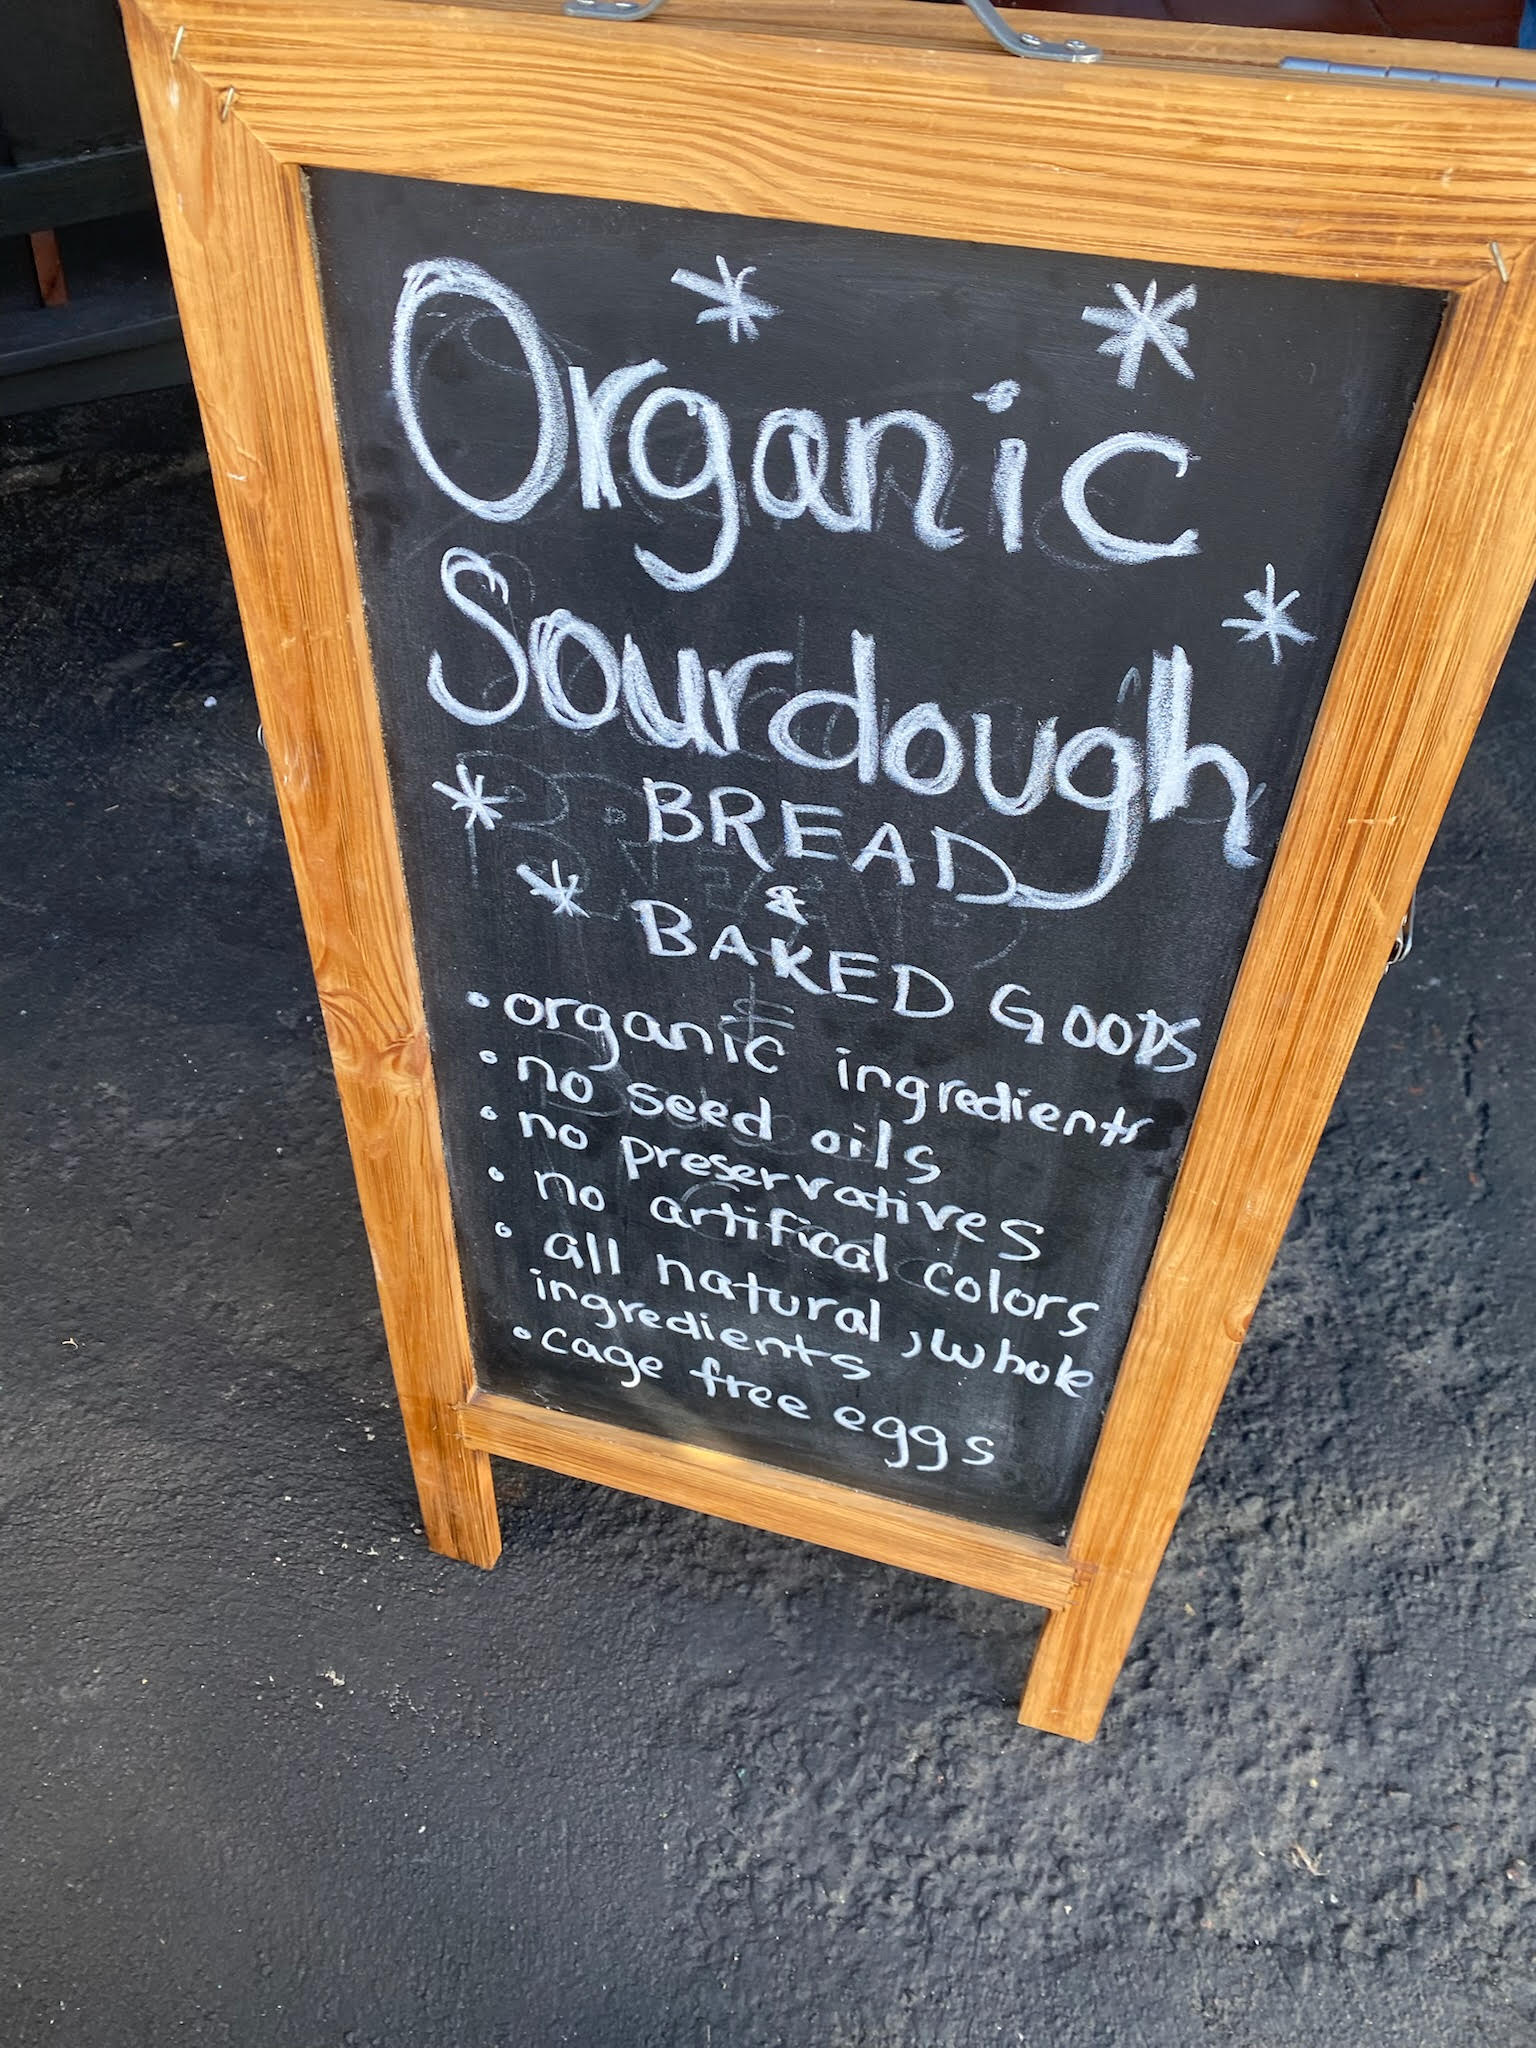 Organic
Sourdough
BREAD
&
BAKED GOODS
• organic ingredients
• no seed oils
• no preservatives
• no artifical colors
• all natural, whole
ingredients
• cage free eggs